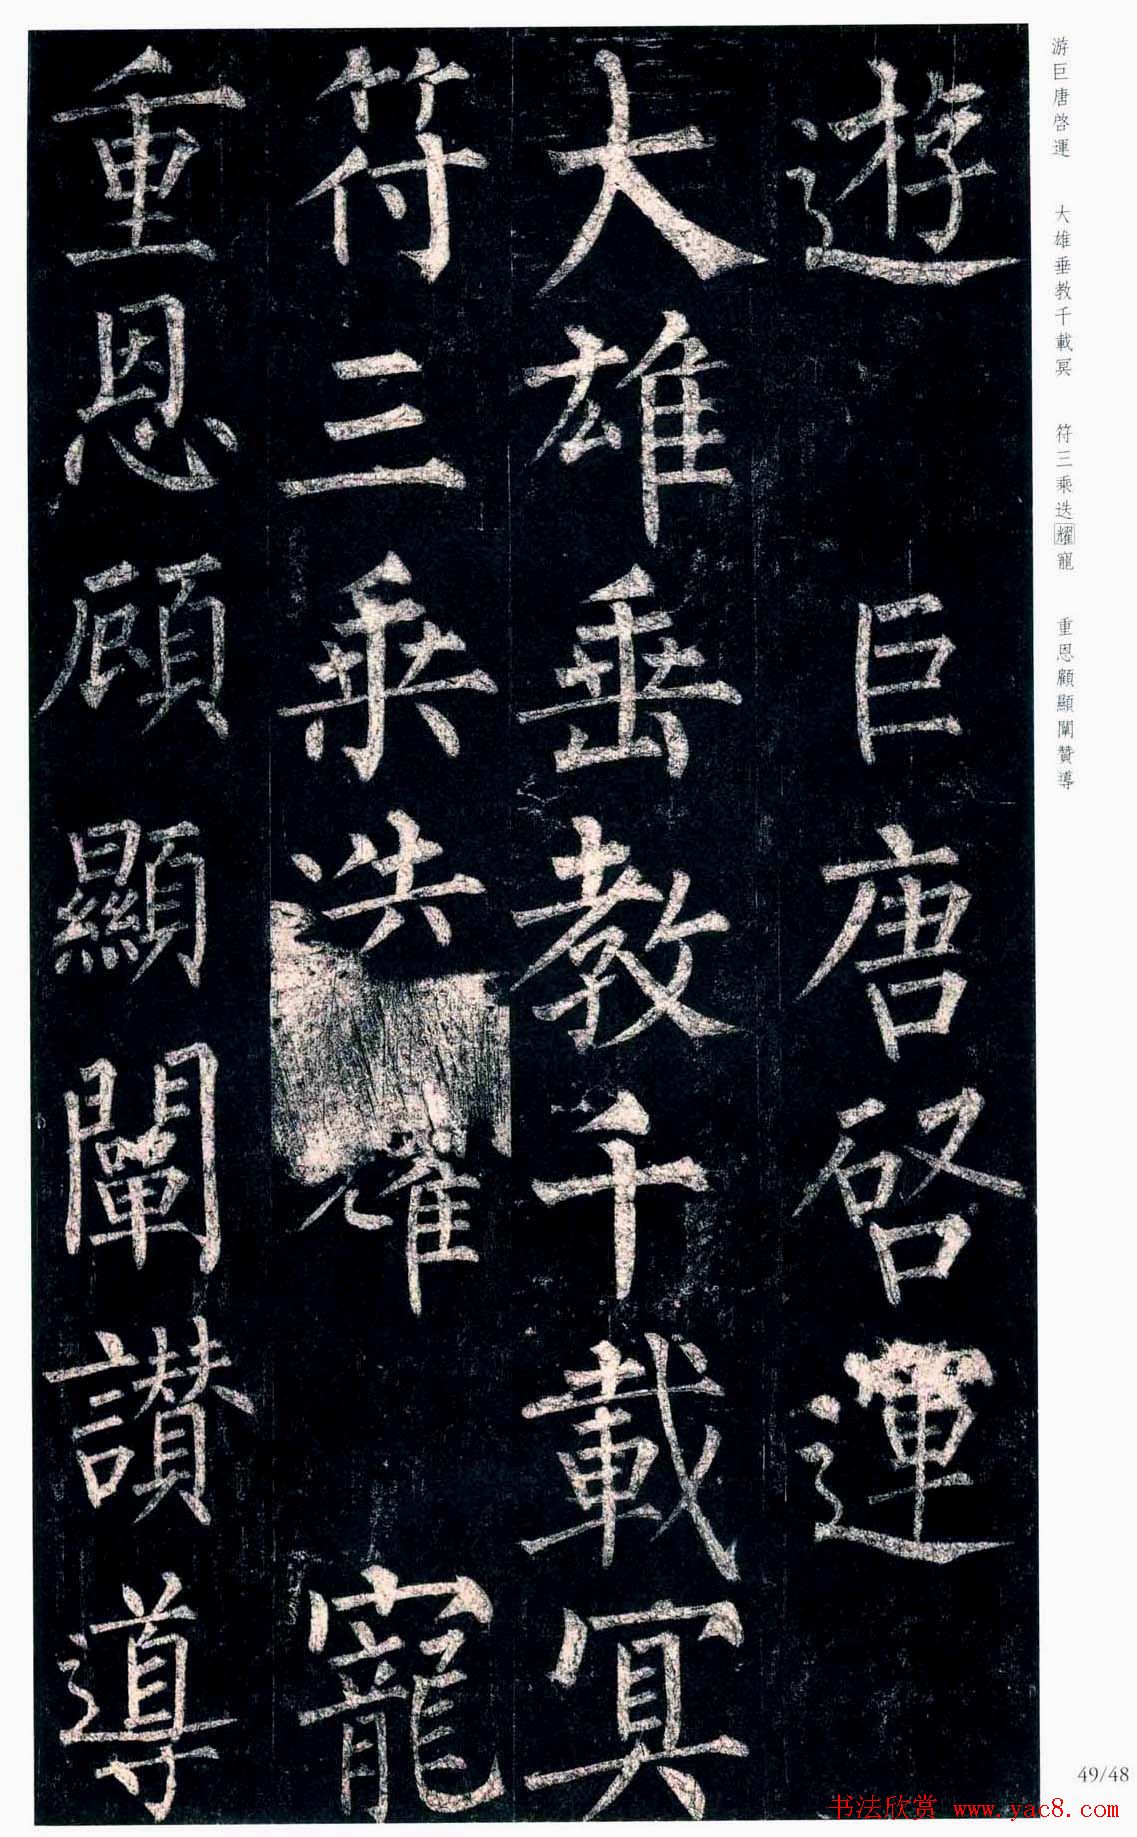 遊 巨唐啓運
大雄垂教千載冥
符三乘迭耀 寵
重恩顧顯闡讃導
游巨唐啓運 大雄垂教千載冥 符三乘迭耀寵 重恩顧顯闡贊導
49/48
书法欣赏 www.yac8.com